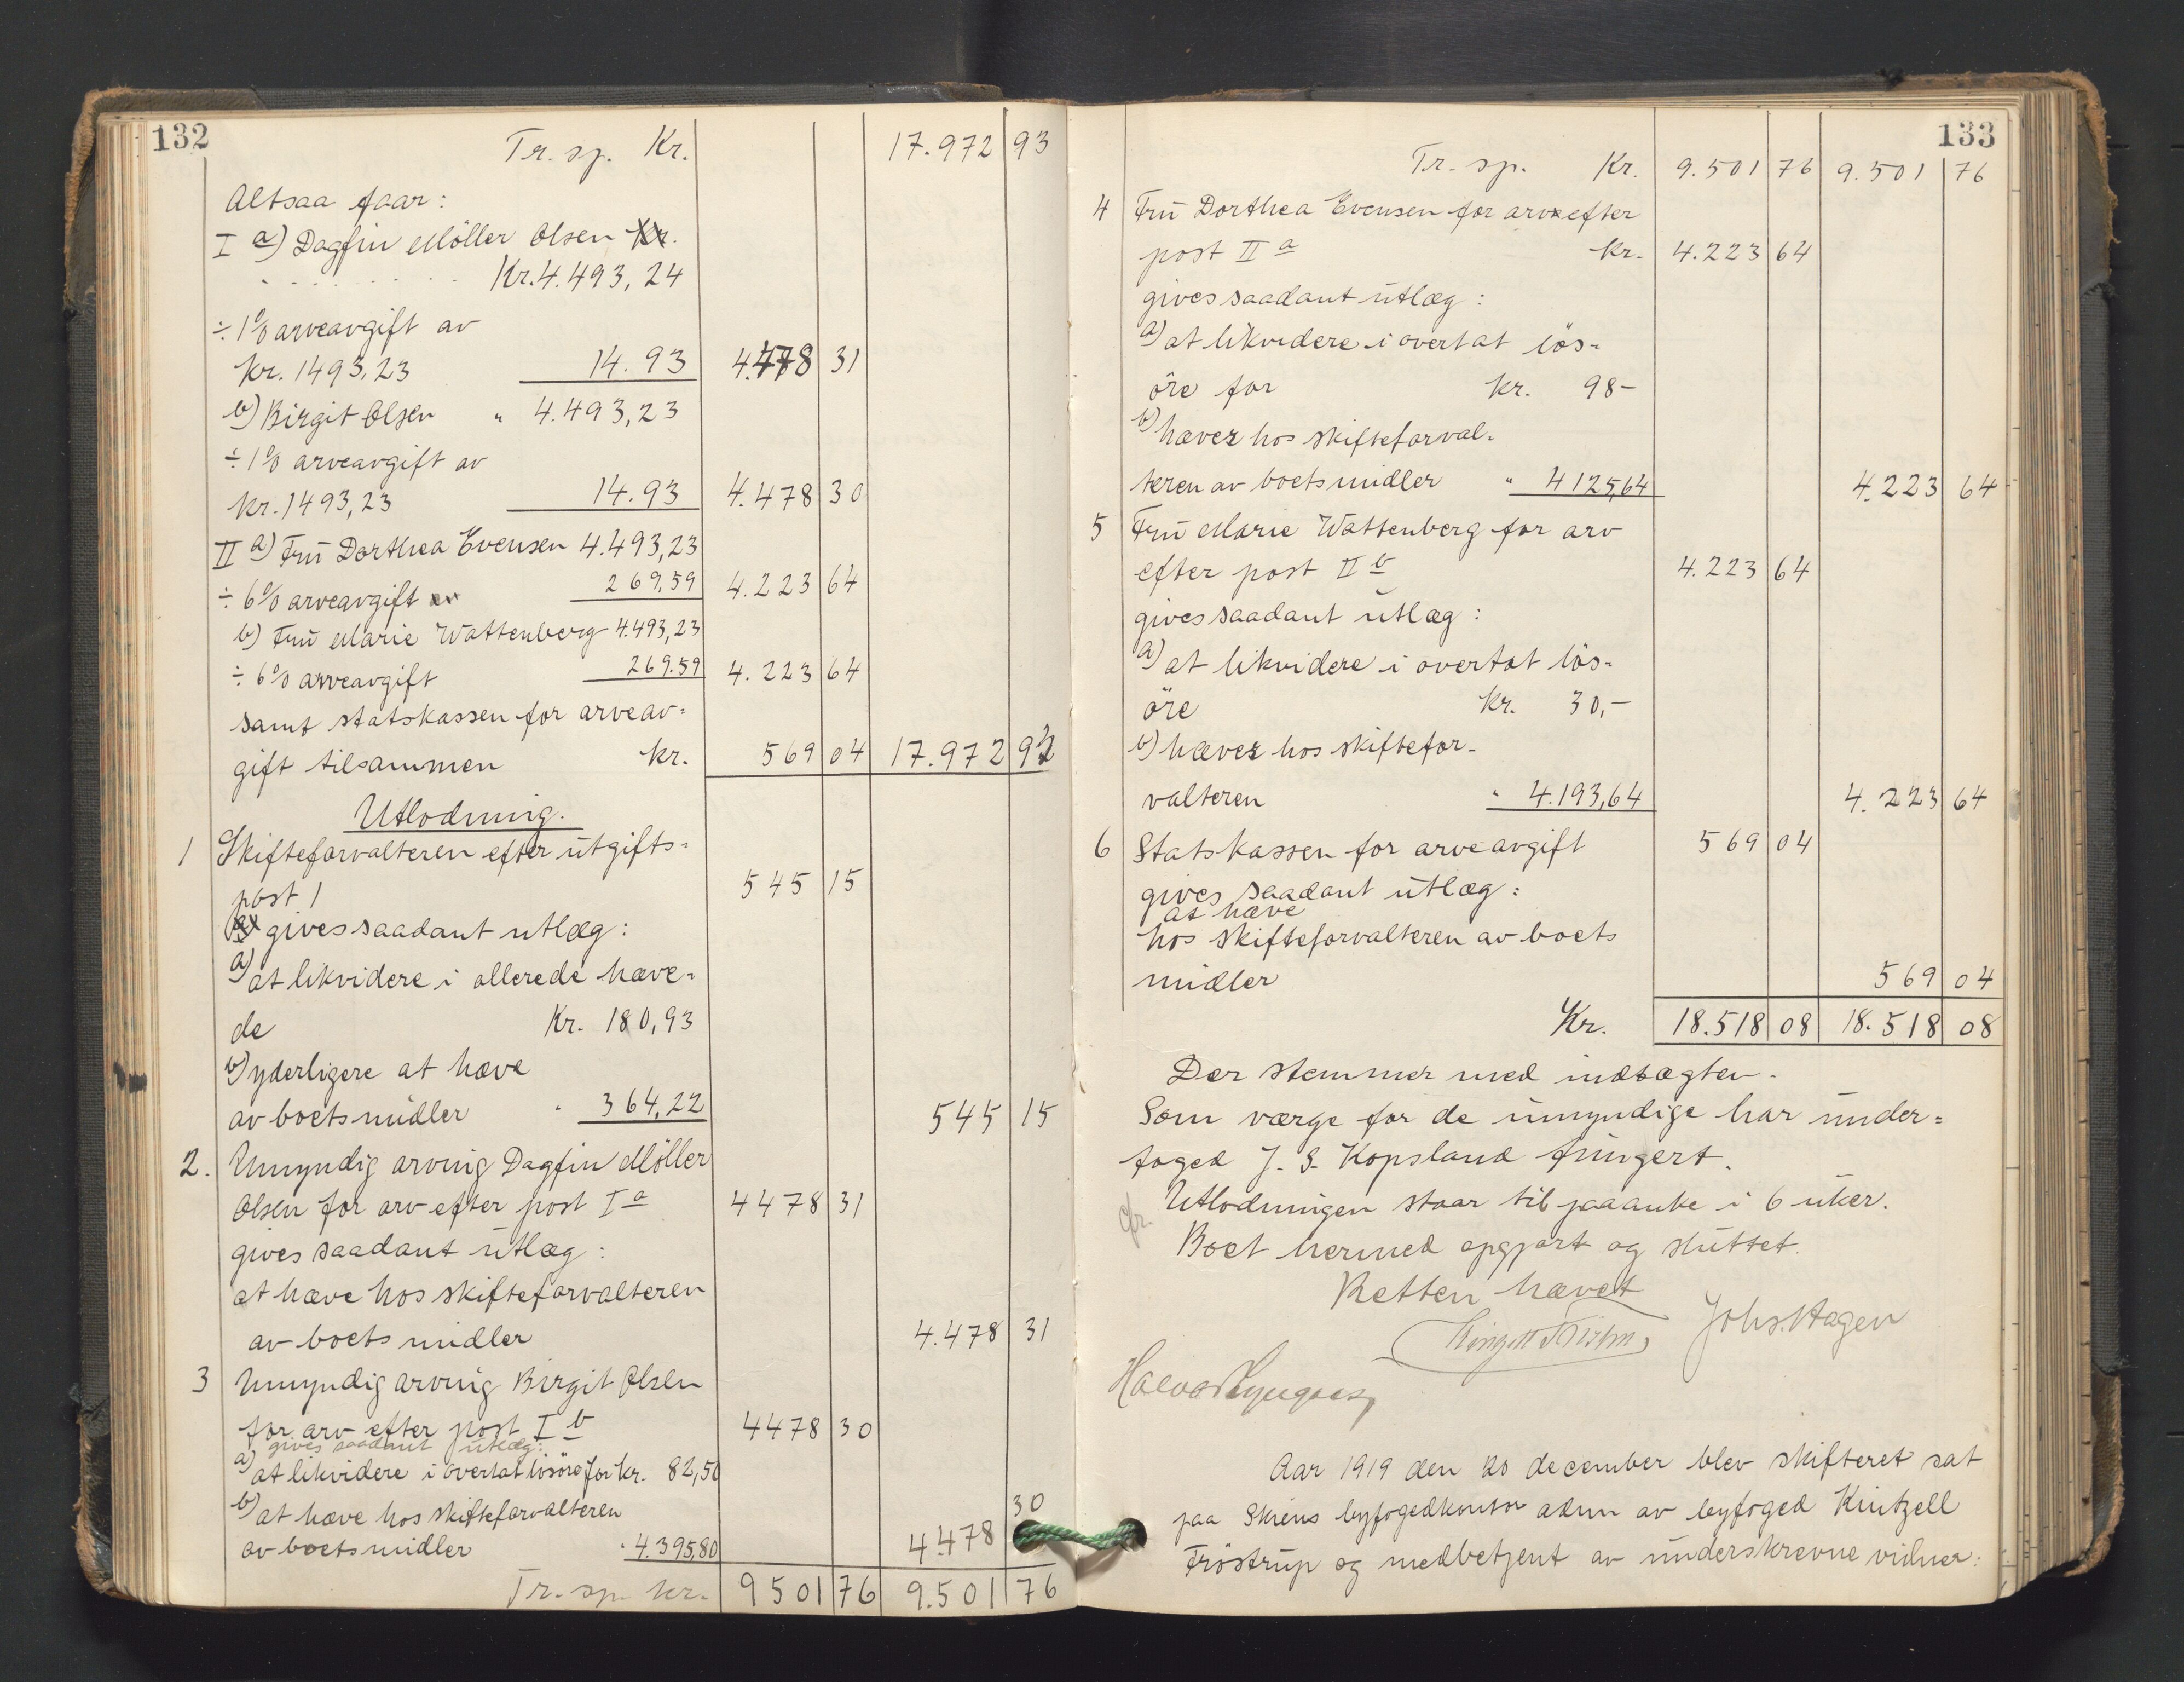 132
Tr. sp. Kr. 17.972 93
Altsaa faar:
I a) Dagfin Möller Olsen Kr.
Kr. 4.493,24
÷ 1% arveavgift av
Kr. 1493,23 14.93 4.478 31
b) Birgit Olsen " 4.493,23
÷ 1% arveavgift av
Kr. 1493,23 14.93 4.478 30
II a) Fru Dorthea Evensen 4.493,23
÷ 6% arveavgift av 269,59 4.223 64
b) Fru Marie Wattenberg 4.493,23
÷ 6% arveavgift 269.59 4.223 64
samt statskassen for arveav=
gift tilsammen Kr. 569 04 17.972 93
Utlodning.
1 Skifteforvalteren efter utgifts=
post 1 545 15
gives saadant utlæg:
a) at likvidere i allerede hæve=
de Kr. 180,93
b) yderligere at hæve
av boets midler " 364,22 545 15
2. Umyndig arving Dagfin Möller
Olsen for arv efter post I a 4478 31
gives saadant utlæg:
at hæve hos skifteforvalteren
av boets midler 4.478 31
3 Umyndig arving Birgit Olsen
for arv efter post I b 4478 30
gives saadant utlæg:
a) at likvidere i overtat lösöre for kr. 82,50
b) at hæve hos skifteforvalteren
av boets midler " 4.395,80 4478 30
Tr. sp. kr. 9501 76 9.501 76
133
Tr. sp. Kr. 9.501 76 9.501 76
4 Fru Dorthea Evensen for arv efter
post II a Kr. 4.223 64
gives saadant utlæg:
a) at likvidere i overtat lös=
öre for Kr. 98-
b) hæves hos skifteforval=
teren av boets midler " 4125,64 4.223 64
5 Fru Marie Wattenberg for arv
efter post II b 4.223 64
gives saadant utlæg:
a) at likvidere i overtat lös=
öre Kr. 30,-
b) hæves hos skiftefor-
valteren " 4.193,64 4.223 64
6 Statskassen for arveavgift 569 04
gives saadant utlæg:
at hæve
hos skifteforvalteren av boets
midler 569 04
Kr. 18.518 08 18.518 08
Der stemmer med indtægten.
Som værge for de umyndige har under=
foged J. S. Kopsland fungert.
Utlodningen staar til paaanke i 6 uker.
Boet hermed opgjort og sluttet.
Retten hævet
Johs. Hagen
Aar 1919 den 20 december blev skifteret sat
paa Skiens byfogedkontor adm av byfoged Kintzell
Fröstrup og medbetjent av underskrevne vidner: